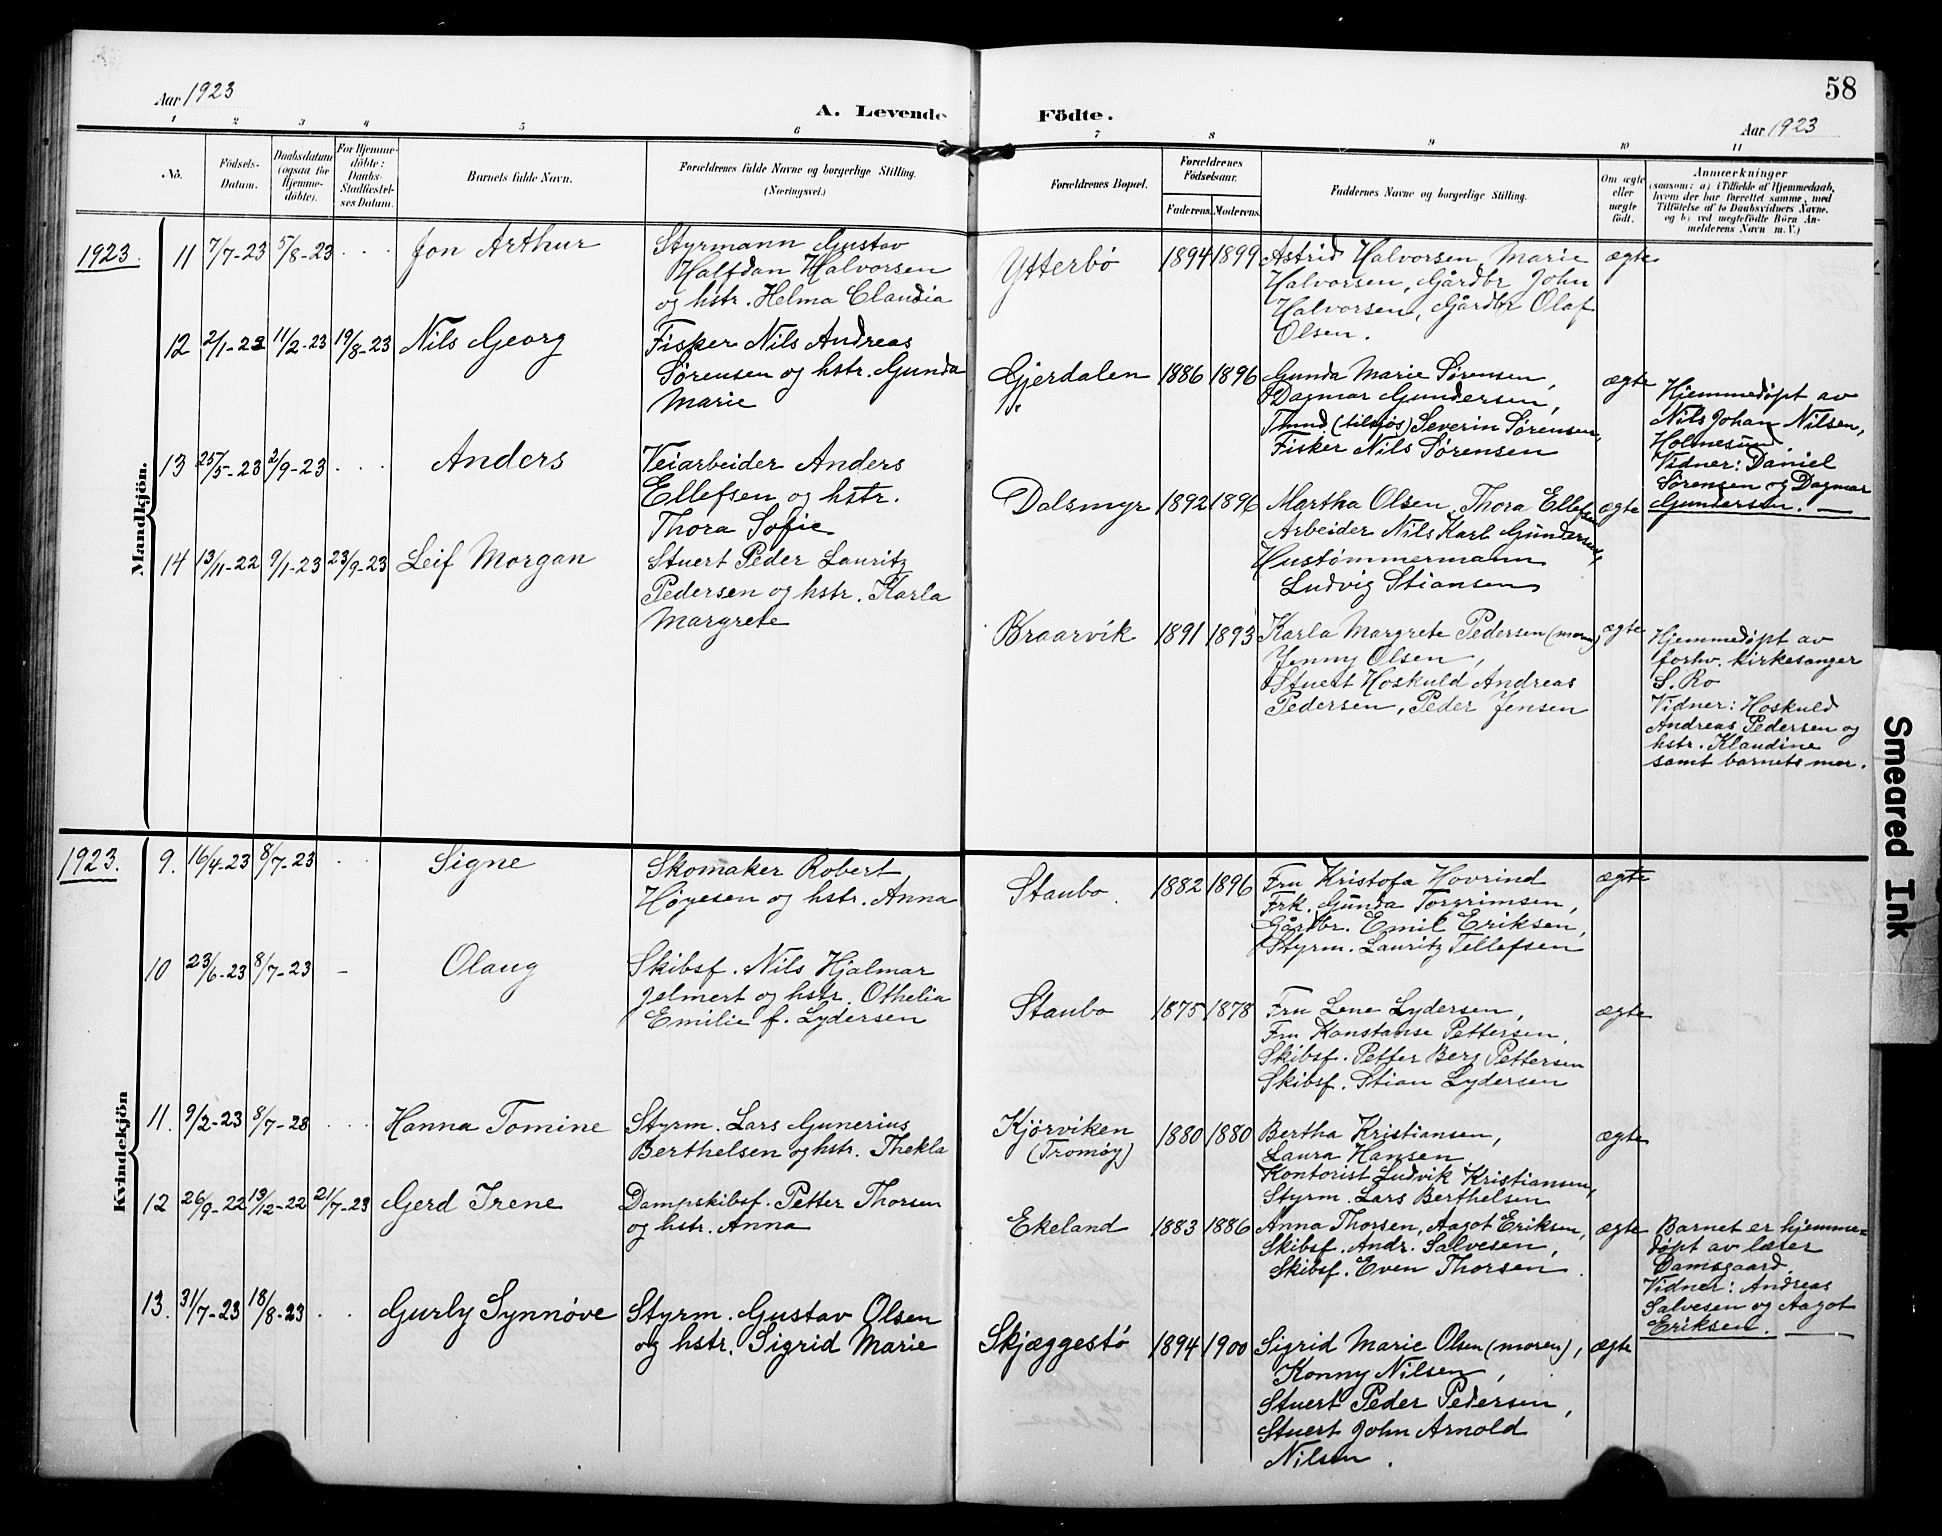 58
Aar 1923
A. Levende Födte.
Aar 1923
1 2 3 4 5 6 7 8 9 10 11
No.
Födsels-
Datum.
Daabsdatum
(ogsaa for
Hjemme-
döbte).
For Hjemme-
döbte:
Daabs-
Stadfæstel-
ses Datum.
Barnets fulde Navn.
Forældrenes fulde Navne og borgerlige Stilling.
(Næringsvei.)
Forældrenes Bopæl.
Forældrenes
Födselsaar.
Faderens. Moderens.
Faddernes Navne og borgerlige Stilling.
Om ægte
eller
uægte
födt.
Anmærkninger
(saasom: a) i Tilfælde af Hjemmedaab,
hvem der har forrettet samme, med
Tilföielse af to Daabsvidners Navne,
og b) ved uægtefödte Börn An-
melderens Navn m. V.)
Mandkjön.
1923. 11 7/7-23 5/8-23 . . . Jon Arthur
Styrmann Gustav
Halfdan Halvorsen
og hstr. Helma Claudia
Ytterbø 1894 1899
Astrid Halvorsen, Marie
Halvorsen, Gårdbr John
Halvorsen, Gårdbr Olaf
Olsen.
ægte
12 2/1-23 11/2-23 19/8-23 Nils Georg
Fisker Nils Andreas
Sørensen og hstr. Gunda
Marie
Gjerdalen 1886 1896
Gunda Marie Sørensen,
Dagmar Gundersen,
Tmnd. (tilsjøs) Severin Sørensen,
Fisker Nils Sørensen
ægte
Hjemmedøpt av
Nils Johan Nilsen,
Holmesund
Vidner: Daniel
Sørensen og Dagmar
Gundersen. —
13 25/5-23 2/9-23 . . . Anders
Veiarbeider Anders
Ellefsen og hstr.
Thora Sofie
Dalsmyr 1892 1896
Martha Olsen, Thora Ellefsen
Arbeider Nils Karl Gundersen,
Hustømmermann
Ludvig Stiansen
ægte
14 13/11-22 9/1-23 23/9-23 Leif Morgan
Stuert Peder Lauritz
Pedersen og hstr. Karla
Margrete
Braarvik 1891 1893
Karla Margrete Pedersen (moren)
Jenny Olsen,
Stuert Hoskuld Andreas
Pedersen, Peder Jensen
ægte
Hjemmedøpt av
forhv. kirkesanger
S. Ro
Vidner: Hoskuld
Andreas Pedersen og
hstr. Klaudine
samt barnets mor.
Kvindekjön
1923. 9. 16/4-23 8/7-23 . . Signe
Skomaker Robert
Høyesen og hstr. Anna
Staubo. 1882 1896
Fru Kristofa Hovrind
Frk. Gunda Torgrimsen,
Gårdbr. Emil Eriksen,
Styrm. Lauritz Tellefsen
ægte
10 23/6-23 8/7-23 – Olaug
Skibsf. Nils Hjalmar
Jelmert og hstr. Othelia
Emilie f. Lydersen
Staubo 1875 1878
Fru Lene Lydersen,
Fru Konstanse Pettersen,
Skibsf. Petter Berg Pettersen
Skibsf. Stian Lydersen
ægte
11. 9/2-23 8/7-23 . . . Hanna Tomine
Styrm. Lars Gunerius
Berthelsen og hstr. Thekla
Kjørviken
(Tromøy)
1880 1880
Bertha Kristiansen,
Laura Hansen
Kontorist Ludvik Kristiansen,
Styrm. Lars Berthelsen
ægte
12 26/9-22 13/12-22 21/7-23 Gerd Irene
Dampskibsf. Petter Thorsen
og hstr. Anna
Ekeland 1883 1886
Anna Thorsen, Aagot Eriksen,
Skibsf. Andr. Salvesen,
Skibsf. Even Thorsen.
ægte
Barnet er hjemme-
døpt av lærer
Damsgaard.
Vidner: Andreas
Salvesen og Aagot
Eriksen. —
13. 31/7-23 18/8-23 . . Gurly Synnøve
Styrm. Gustav Olsen
og hstr. Sigrid Marie
Skjæggestø 1894 1900
Sigrid Marie Olsen (moren),
Konny Nilsen,
Stuert Peder Pedersen,
Stuert John Arnold
Nilsen.
ægte
Smeared Ink